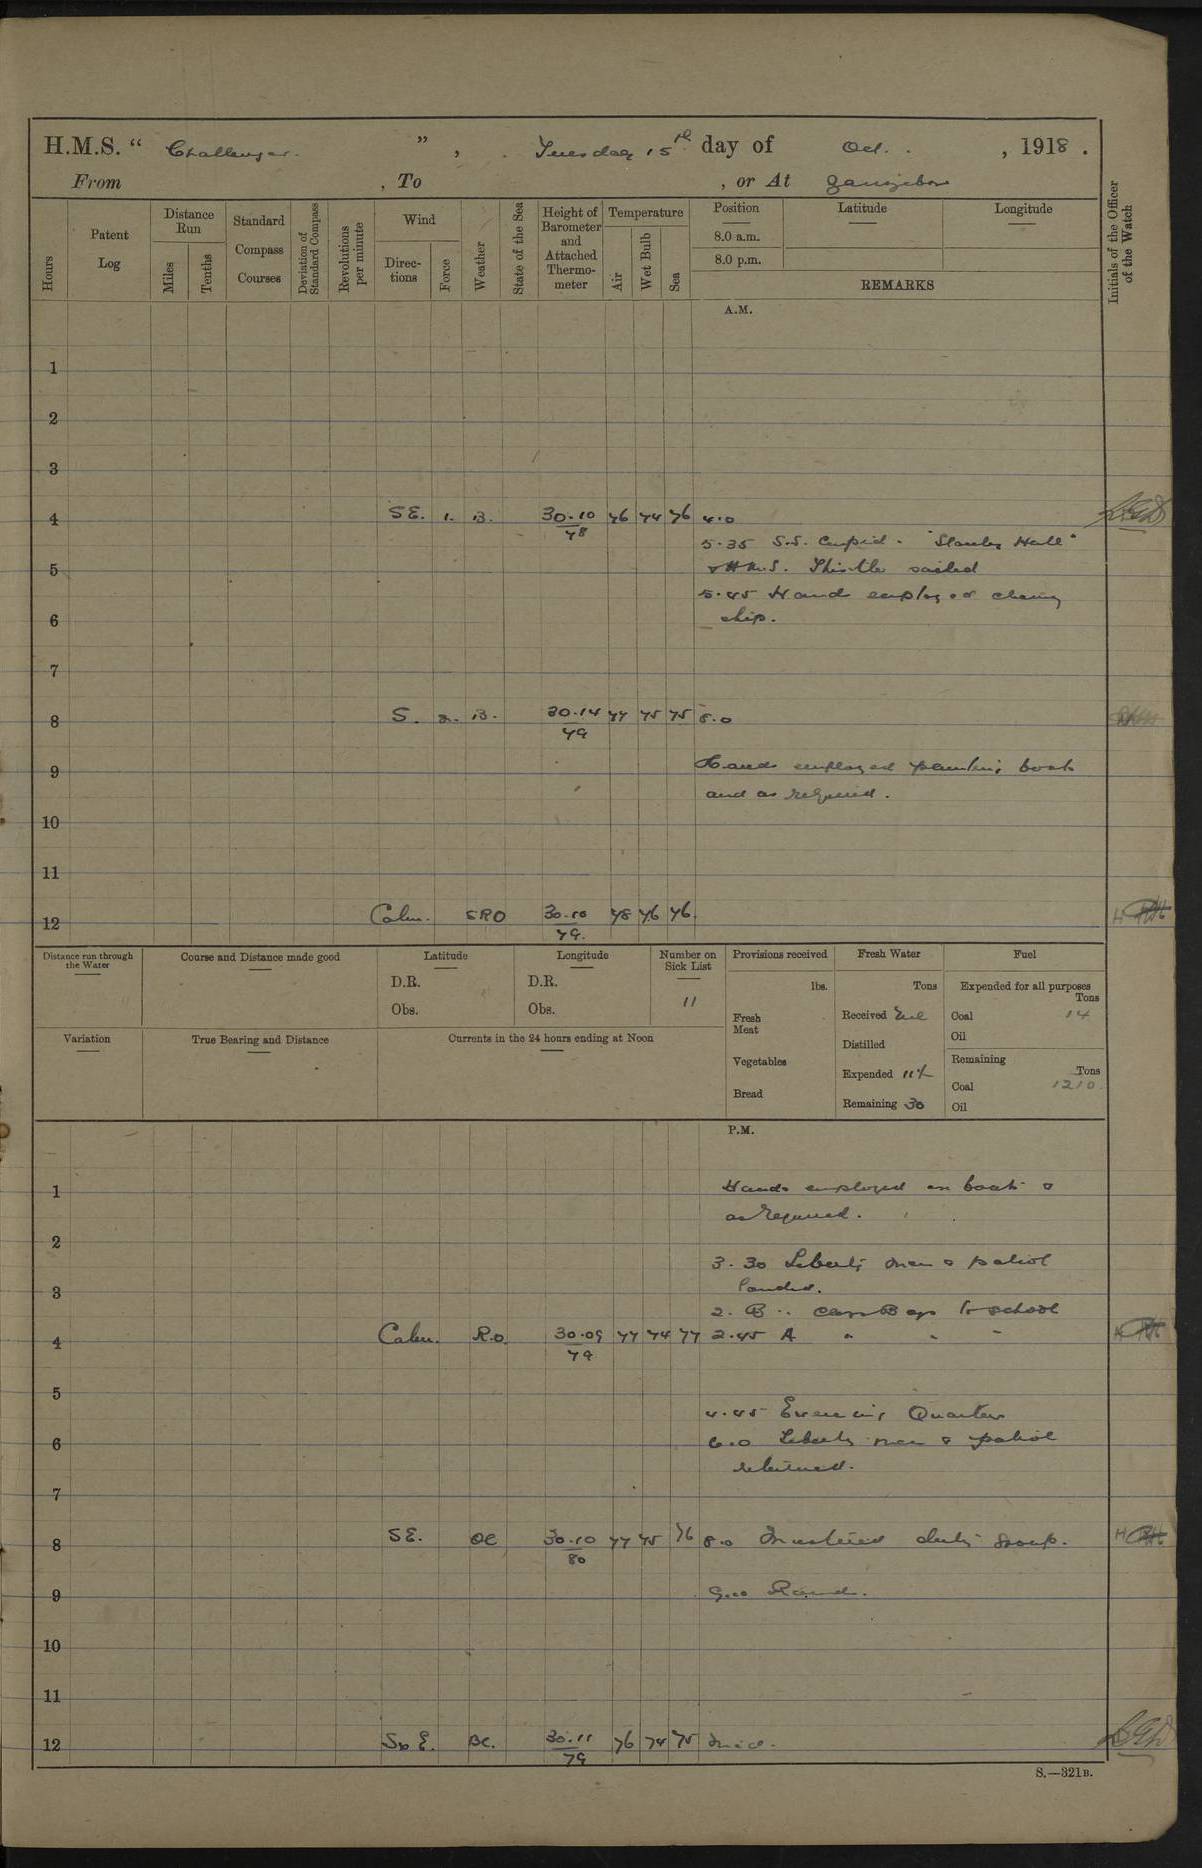 H.M.S. “ Challenger. ” , Tuesday 15th day of Oct. , 1918 .
From , To , or At Zanzibar
Hours
Patent Log
Distance Run
Miles
Tenths
Standard Compass Courses
Deviation of Standard Compass
Revolutions per minute
Wind
Directions
Force
Weather
State of the Sea
Height of Barometer and Attached Thermometer
Temperature
Air
Wet Bulb
Sea
Position
8.0 a.m.
8.0 p.m.
Latitude
Longitude
REMARKS
Initials of the Officer of the Watch
A.M.
1
2
3
4 SE. 1. B. 30.10 78 76 74 76 4.0
5.35 S.S. Cupid. "Stanley Hall"
5 & H.M.S. Thistle sailed
5.45 Hands employed cleaning
6 ship.
7
8 S. 2. B. 30.14 79 77 75 75 8.0
9 Hands employed painting boats
and as required.
10
11
12 Calm. 30.10 79. 78 76 76.
Distance run through the Water
Course and Distance made good
Latitude
D.R.
Obs.
Longitude
D.R.
Obs.
Number on Sick List
11
Provisions received
lbs.
Fresh Meat
Vegetables
Bread
Fresh Water
Tons
Received
Distilled
Expended 11½
Remaining 30
Fuel
Expended for all purposes
Tons
Coal 14
Oil
Remaining
Tons
Coal 1210
Oil
Variation
True Bearing and Distance
Currents in the 24 hours ending at Noon
P.M.
1 Hands employed on boats &
as required.
2
3.30 Liberty men & patrol
3 landed.
2. B .. Boys to school
4 Calm. R.O. 30.09 79 77 74 77 2.45 A " " "
5
4.45 Evening Quarters
6 6.0 Liberty men & patrol
returned.
7
8 SE. 30.10 80 77 75 76 8.0 Mustered duty
9 9.0 Rounds.
10
11
12 SbE. BC. 30.11 79 76 74 75 Mid.
S.—321B.